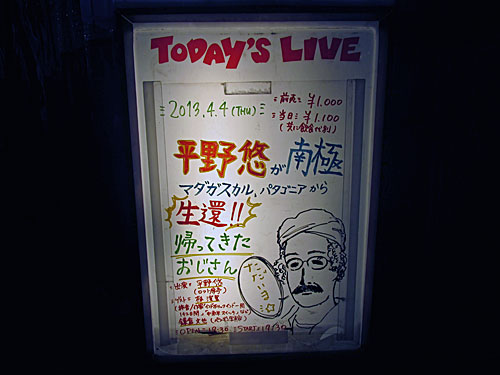 TODAY'S LIVE
2013.4.4(THU)
前売 ¥1,000
当日 ¥1,100
(共に飲食代別)
平野悠が南極
マダガスカル、パタゴニアから
生還!!
帰ってきた
おじさん
ただいま
出演 平野 悠
(ロフト席亭)
ゲスト
OPEN 18:30 START 19:30